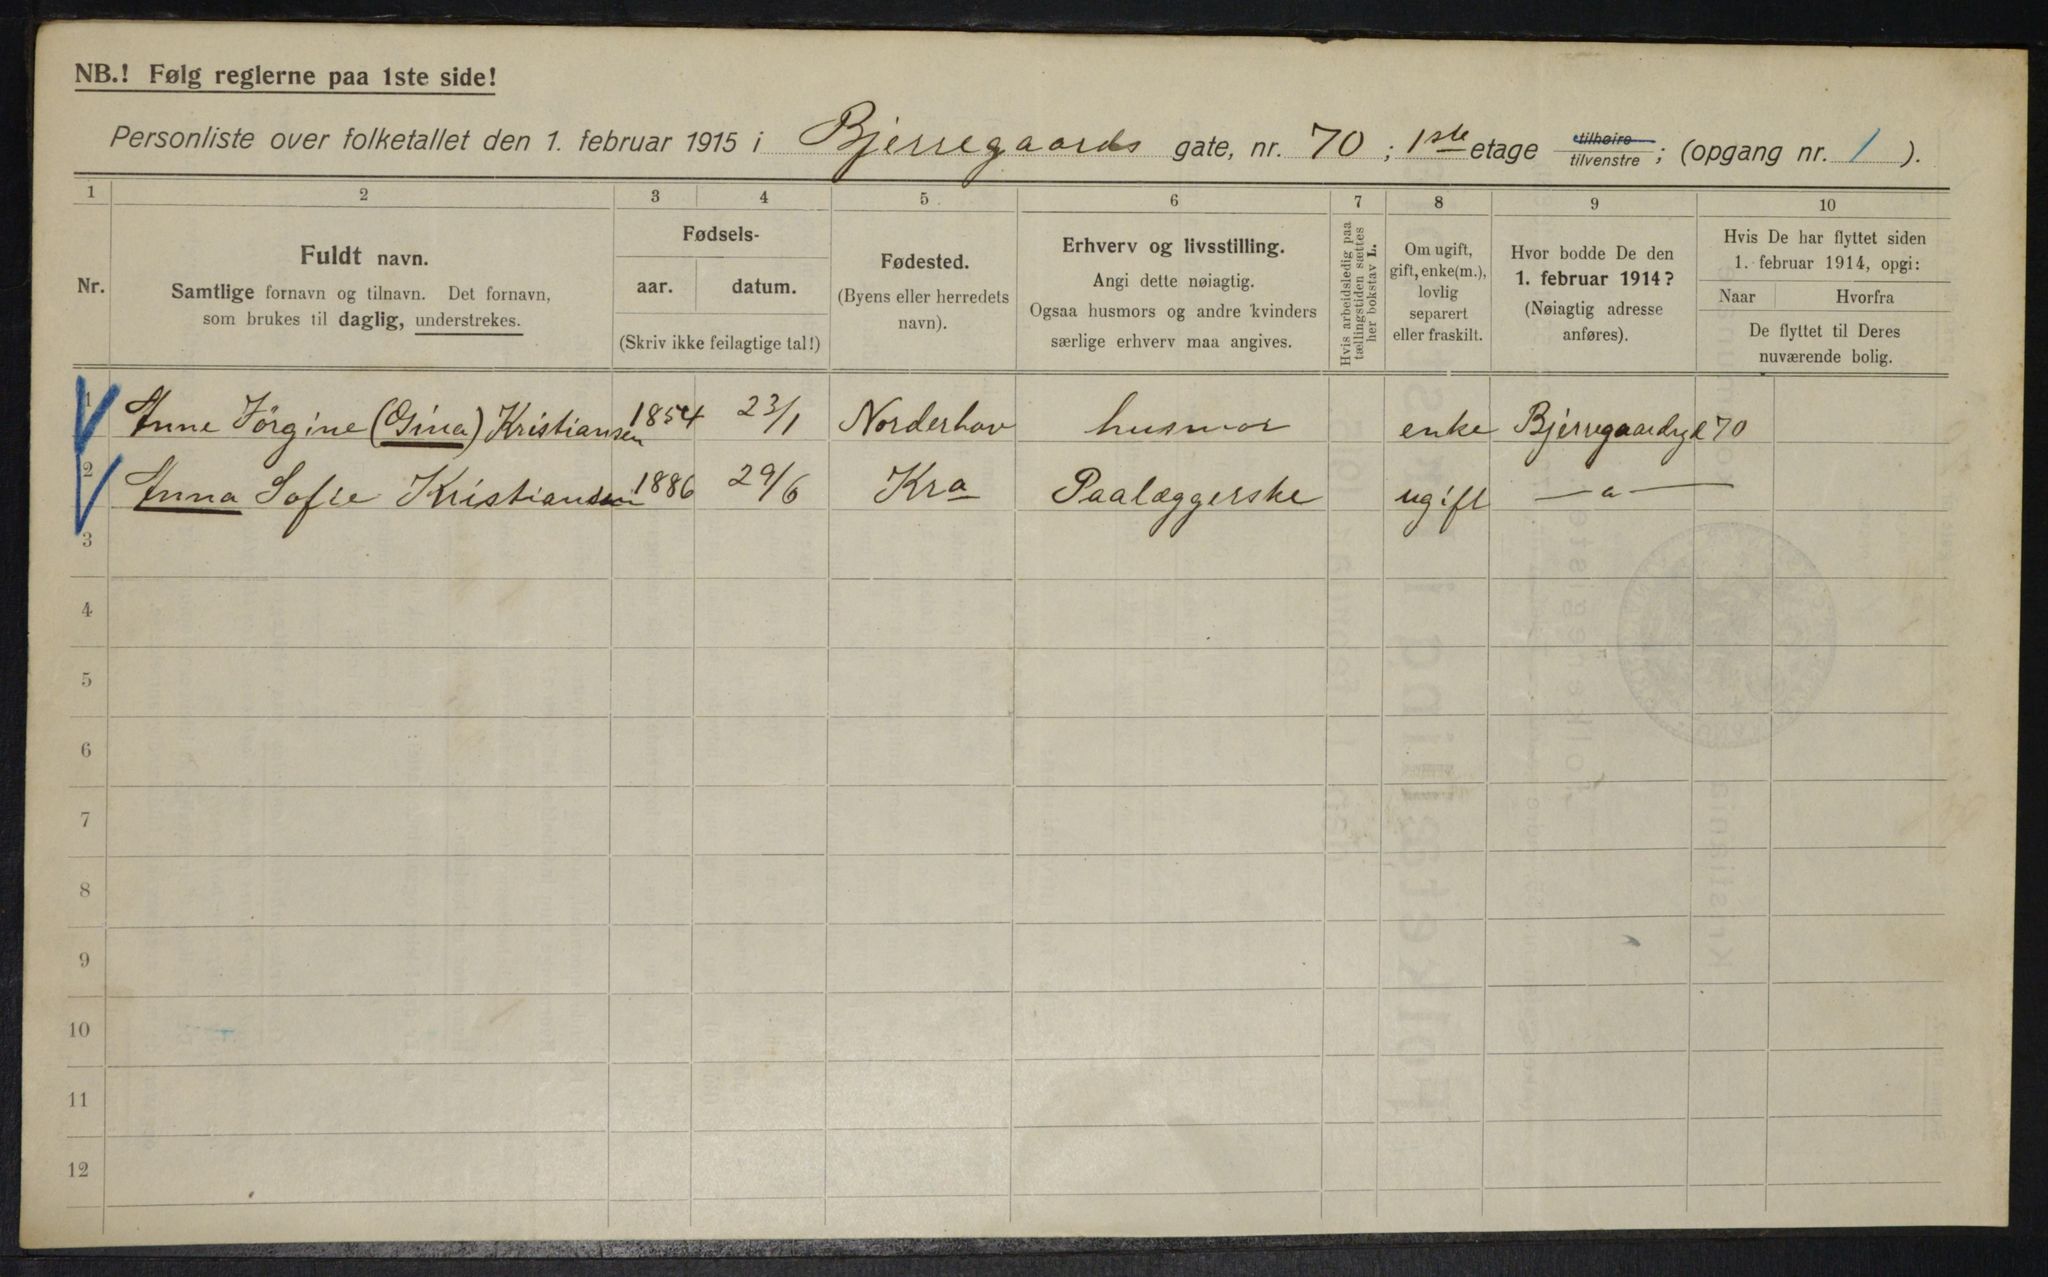 NB.! Følg reglerne paa 1ste side!
Personliste over folketallet den 1. februar 1915 i Bjerregaards gate, nr. 70; 1ste etage tilhøire tilvenstre; (opgang nr. 1).
1 2 3 4 5 6 7 8 9 10
Nr.
Fuldt navn.
Samtlige fornavn og tilnavn. Det fornavn,
som brukes til daglig, understrekes.
Fødsels-
aar. datum.
(Skriv ikke feilagtige tal!)
Fødested.
(Byens eller herredets
navn).
Erhverv og livsstilling.
Angi dette nøiagtig.
Ogsaa husmors og andre kvinders
særlige erhverv maa angives.
Hvis arbeidsledig paa
tællingstiden sættes
her bokstav L.
Om ugift,
gift, enke(m.),
lovlig
separert
eller fraskilt.
Hvor bodde De den
1. februar 1914?
(Nøiagtig adresse
anføres).
Hvis De har flyttet siden
1. februar 1914, opgi:
Naar Hvorfra
De flyttet til Deres
nuværende bolig.
1 Anne Jørgine (Gina) Kristiansen 1854 23/1 Norderhov husmor enke Bjerregaardsgt 70
2 Anna Sofie Kristiansen 1886 29/6 Kra Paalæggerske ugift — a —
3
4
5
6
7
8
9
10
11
12